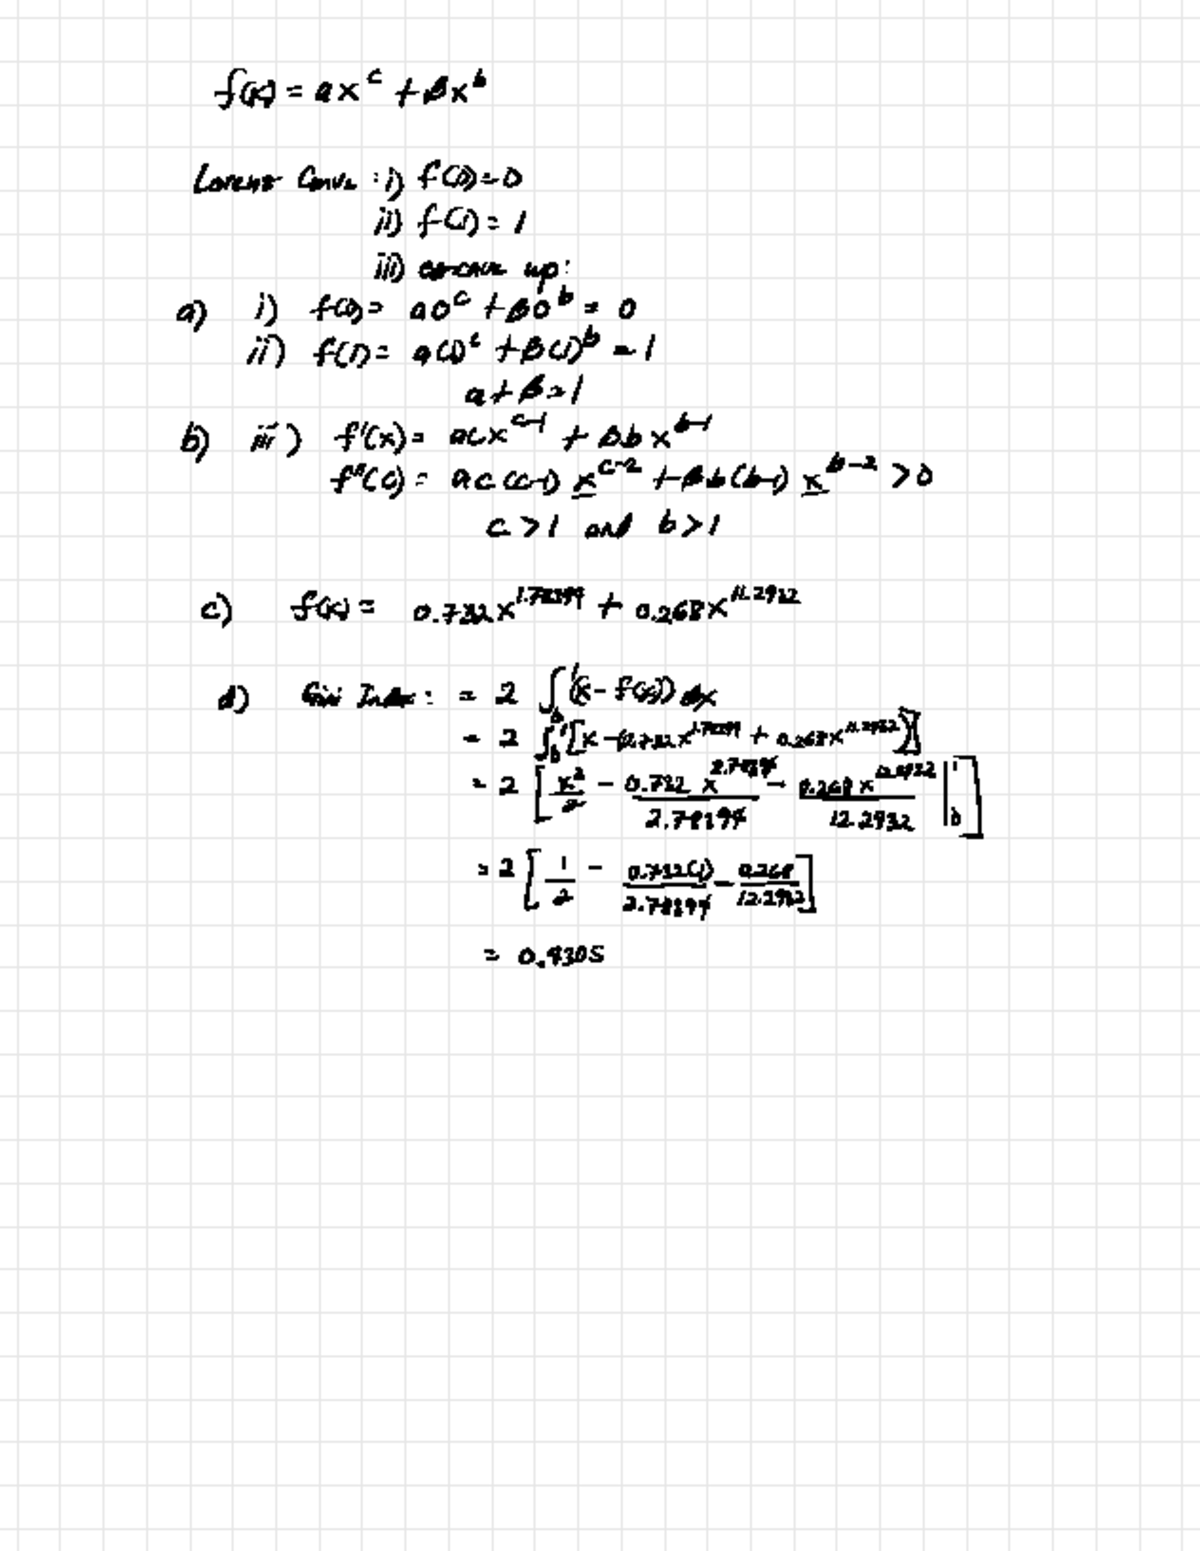 f(x) = ax^c + βx^b
Lorenz Curve : i) f(0) = 0
ii) f(1) = 1
iii) concave up:
a) i) f(0) = a0^c + β0^b = 0
ii) f(1) = a(1)^c + β(1)^b = 1
a + β = 1
b) iii) f'(x) = acx^(c-1) + βbx^(b-1)
f''(c) = ac(c-1) x^(c-2) + βb(b-1) x^(b-2) > 0
c > 1 and b > 1
c) f(x) = 0.732x^ + 0.268x^11.2932
d) Gini Index: = 2 ∫₀¹ (x - f(x)) dx
= 2 ∫₀¹ [x - (0.732x^ + 0.268x^11.2932)]
= 2 [ x²/2 - 0.732 x^/ - 0.268x^12.2932/12.2932 |₀¹ ]
= 2 [ 1/2 - 0.732(1)/ - 0.268/12.2932 ]
= 0.4305